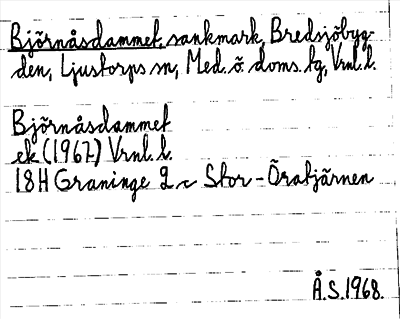 Björnåsdammet, sankmark, Bredsjöbyg-
den, Ljustorps sn, Med. ö. doms. tg, Vrnl. l.
Björnåsdammet
ek (1967) Vrnl. l.
18H Graninge 2 c Stor-Öratjärnen
Å.S. 1968.